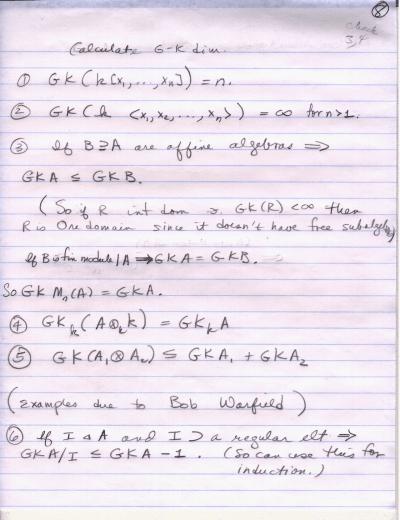 ⑧
check
3,4
Calculate G-K dim.
① GK(k[x₁,...,xₙ]) = n.
② GK(k <x₁,x₂,...,xₙ>) = ∞ for n>1.
③ If B⊇A are affine algebras ⇒
GKA ≤ GKB.
(So if R int dom ∋ GK(R) <∞ then
R is Ore domain since it doesn't have free subalgebra)
If B is fin module/A ⇒ GKA = GKB.
So GK Mₙ(A) = GKA.
④ GKₖ(A⊗ₖk) = GKₖA
⑤ GK(A₁⊗A₂) ≤ GKA₁ + GKA₂
(Examples due to Bob Warfield)
⑥ If I ◁ A and I ⊃ a regular elt ⇒
GKA/I ≤ GKA -1. (So can use this for
induction.)